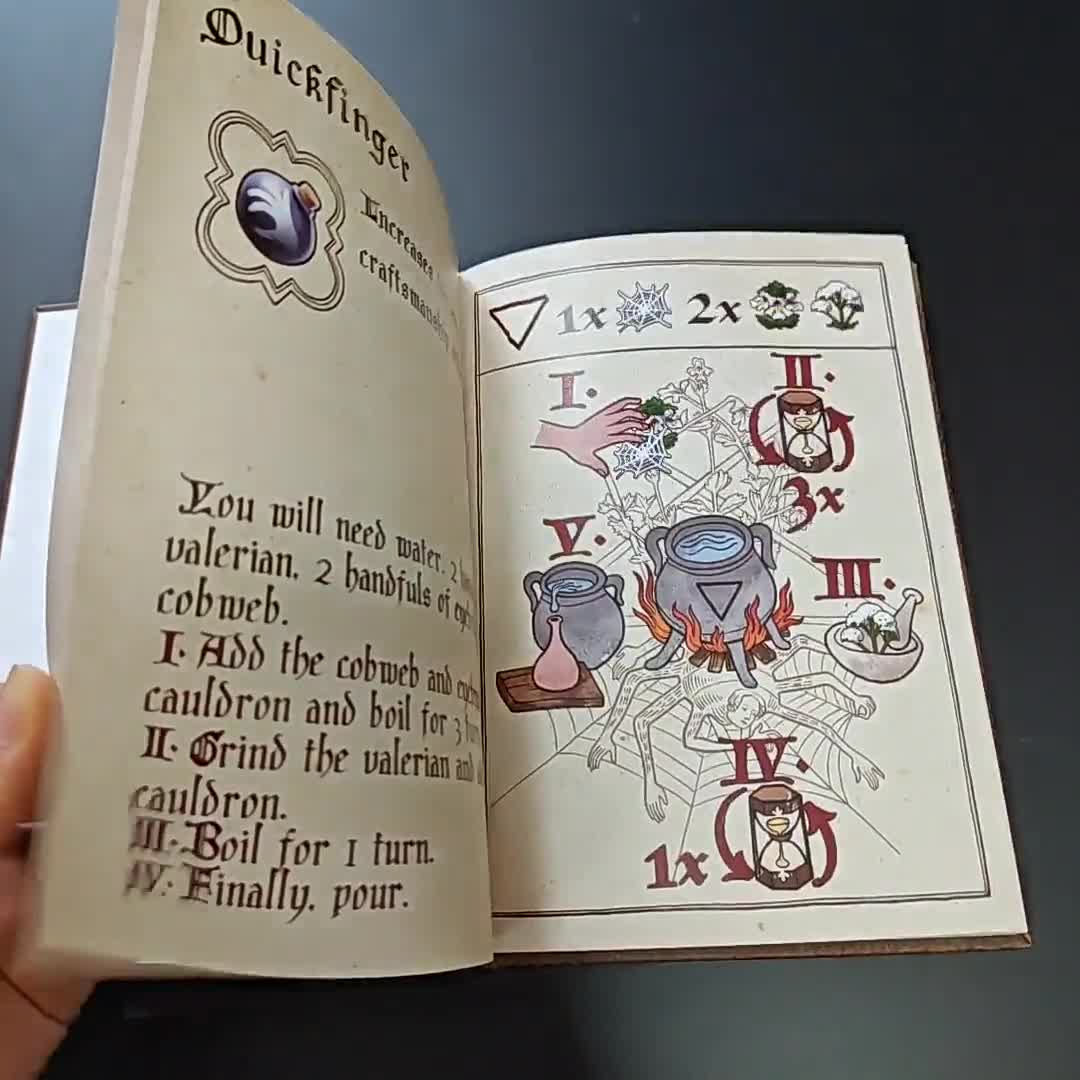 Quickfinger
Increases
craftsmanship
You will need water, 2
valerian, 2 handfuls of
cobweb.
I. Add the cobweb and
cauldron and boil for 3
II. Grind the valerian and
cauldron.
III. Boil for 1 turn.
IV. Finally, pour.
1x 2x
I.
II.
3x
V.
III.
IV.
1x